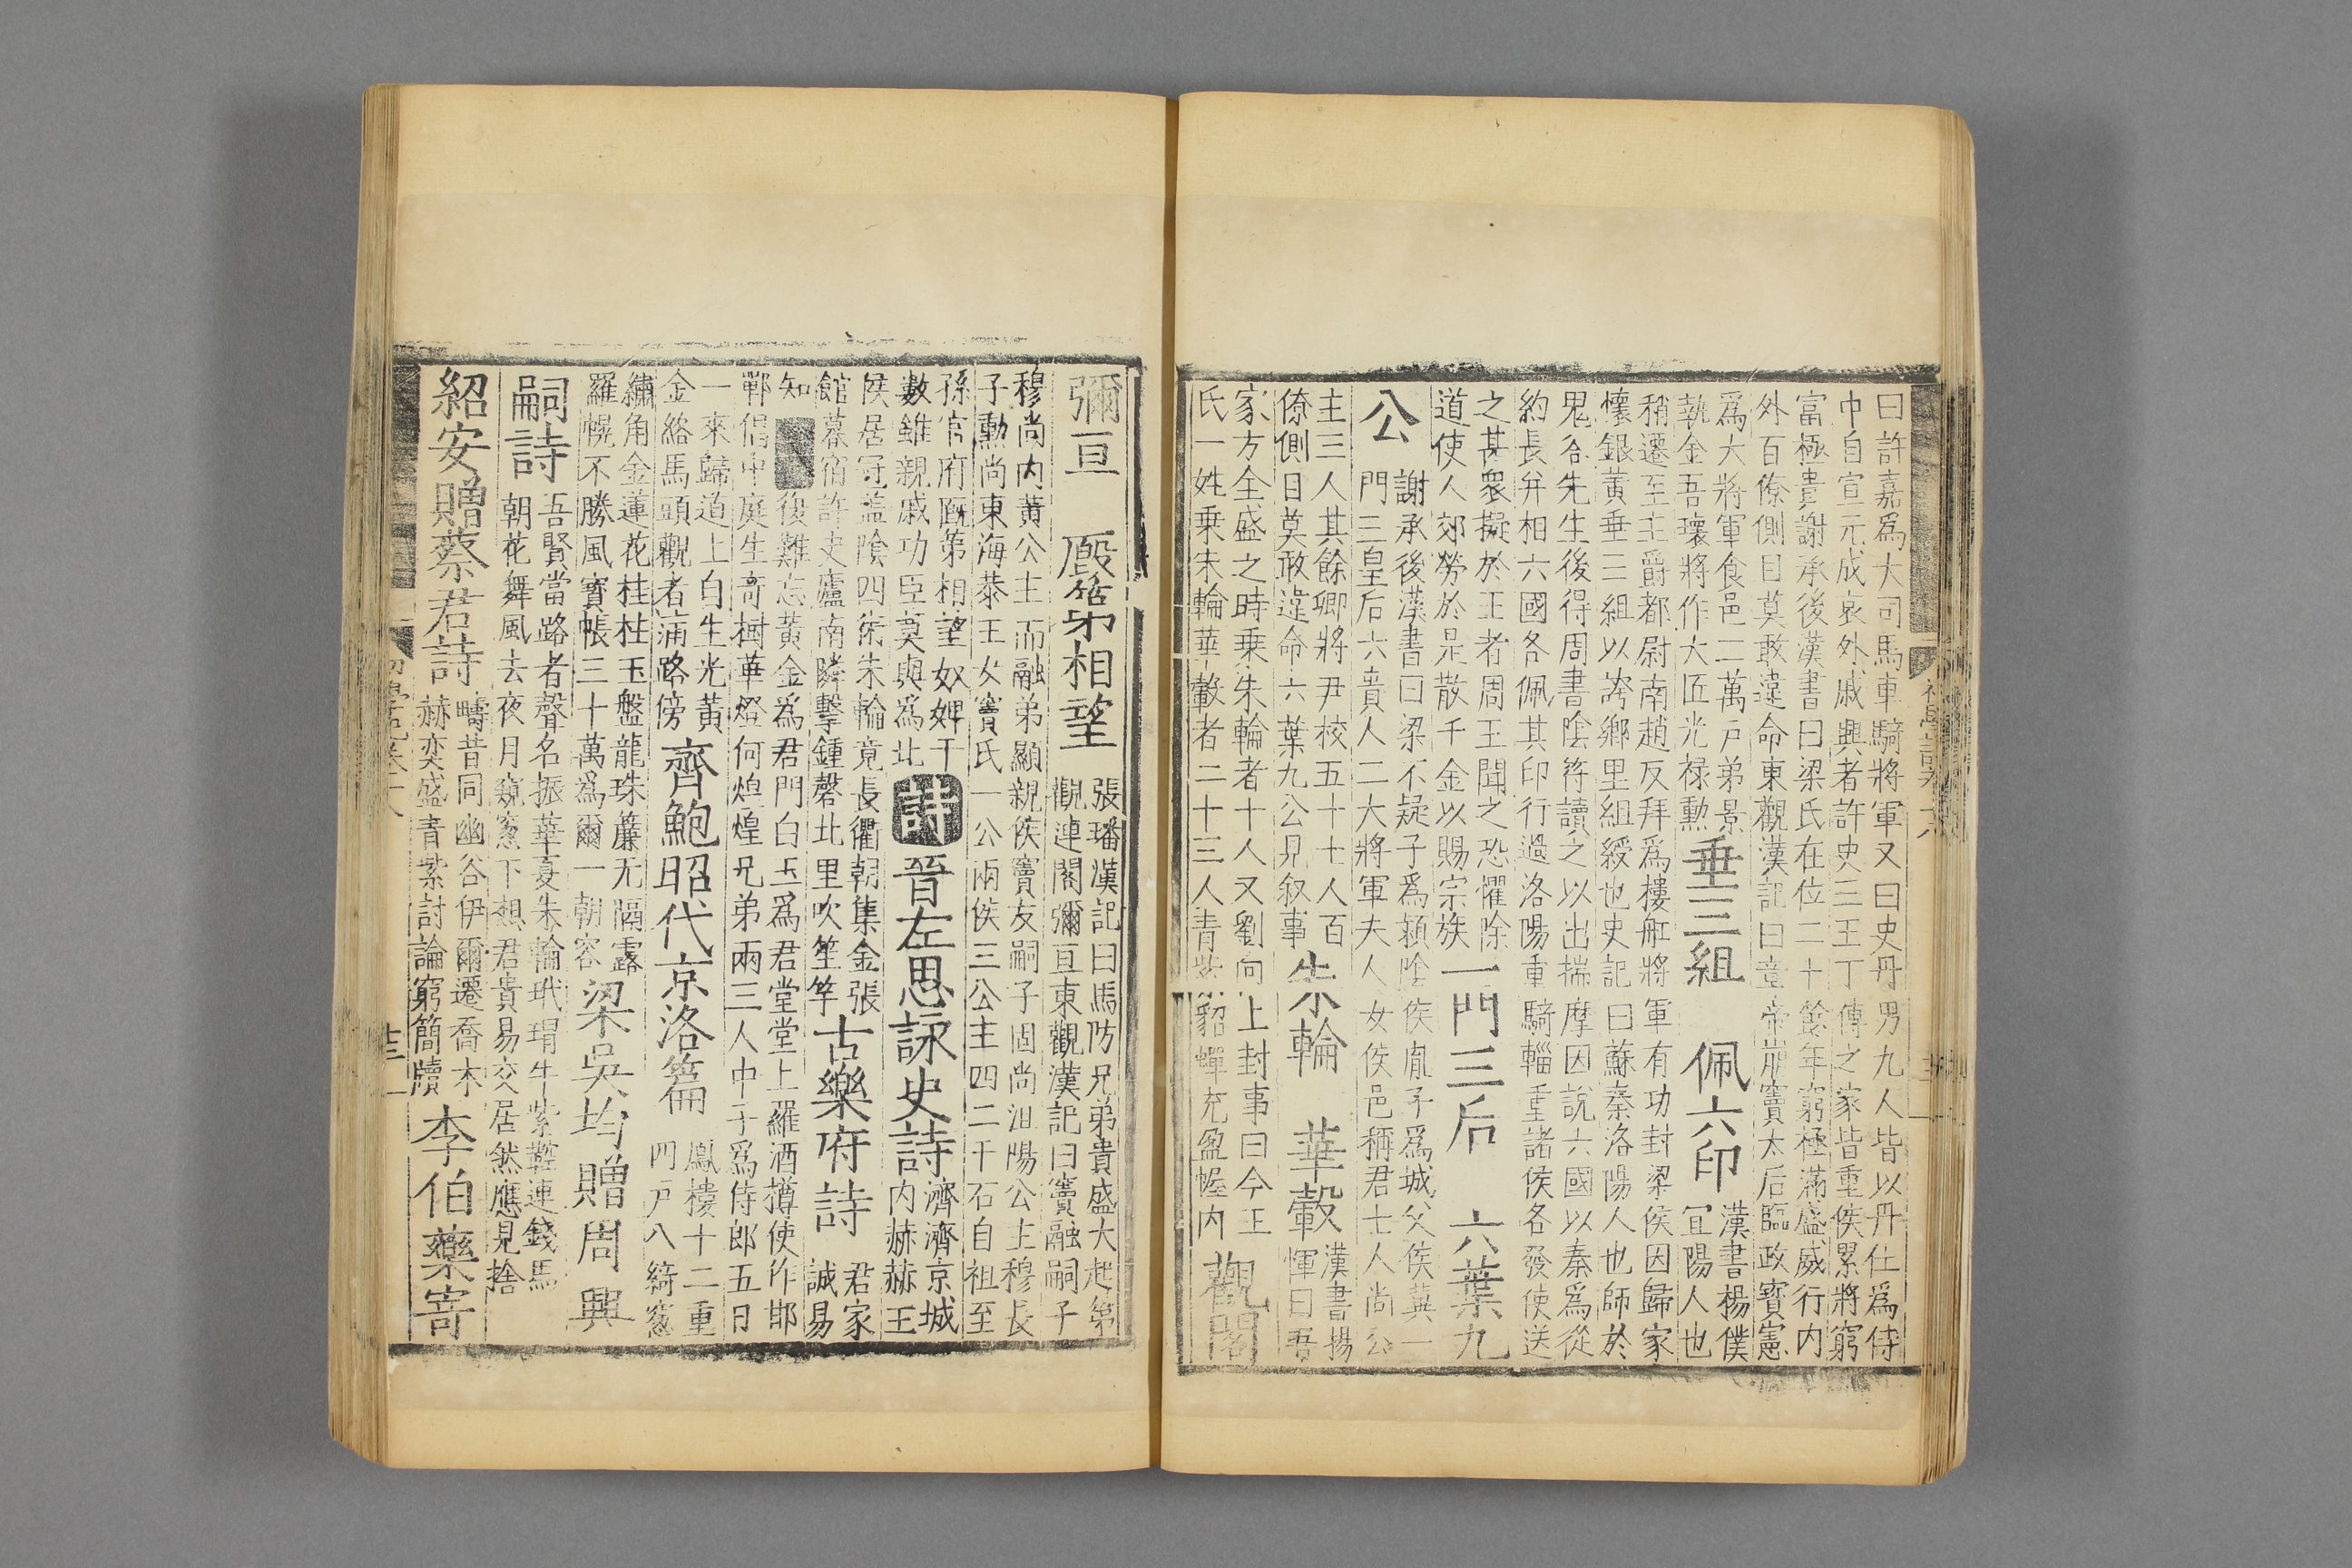 曰許嘉爲大司馬車騎將軍又曰史丹男九人皆以丹任爲侍
中自宣元成哀外戚興者許史三王丁傅之家皆重侯累將窮
富極貴謝承後漢書曰梁氏在位二十餘年窮極滿盛威行内
外百僚側目莫敢違命東觀漢記曰章帝崩竇太后臨政竇憲
爲大將軍食邑二萬戸弟景
執金吾瓌將作大匠光禄勲
垂三組　佩六印
漢書楊僕
冝陽人也
稍遷至主爵都尉南趙反拜爲樓舡將軍有功封梁侯因歸家
懷銀黃垂三組以誇鄉里組綬也史記曰蘇秦洛陽人也師於
鬼谷先生後得周書陰符讀之以出揣摩因說六國以秦爲從
約長并相六國各佩其印行過洛陽車騎輜重諸侯各發使送
之甚衆擬於王者周王聞之恐懼除
道使人郊勞於是散千金以賜宗族
一門三后　六葉九
公
謝承後漢書曰梁不疑子爲潁陰侯胤子爲城父侯冀一
門三皇后六貴人二大將軍夫人女侯邑稱君七人尚公
主三人其餘卿將尹校五十七人百
僚側目莫敢違命六葉九公見叙事
朱輪　華轂
漢書楊
惲曰吾
家方全盛之時乗朱輪者十人又劉向上封事曰今王
氏一姓乗朱輪華轂者二十三人青紫貂蟬充盈幄内
觀閣
彌亘　廏第相望
張璠漢記曰馬防兄弟貴盛大起第
觀連閣彌亘東觀漢記曰竇融嗣子
穆尚内黄公主而融弟顯親侯竇友嗣子固尚沮陽公主穆長
子勲尚東海恭王女竇氏一公兩侯三公主四二千石自祖至
孫官府厩第相望奴婢千
數雖親戚功臣莫與爲比
詩　晉左思詠史詩
濟濟京城
内赫赫王
侯居冠盖陰四術朱輪竟長衢朝集金張
館暮宿許史廬南隣擊鍾磬北里吹笙竽
古樂府詩
君家
誠易
知後難忘黃金爲君門白玉爲君堂堂上羅酒樽使作邯
鄲倡中庭生奇樹華燈何煌煌兄弟兩三人中子爲侍郎五日
一來歸道上自生光黃
金絡馬頭觀者滿路傍
齊鮑昭代京洛篇
鳳樓十二重
四戸八綺窓
繡角金蓮花桂柱玉盤龍珠簾无隔露
羅幌不勝風寳帳三十萬爲爾一朝容
梁吳均贈周興
嗣詩
吾賢當路者聲名振華夏朱輪玳瑁牛紫鞚連錢馬
朝花舞風去夜月窺窓下想君貴易交居然應見捨
紹安贈蔡君詩
疇昔同幽谷伊爾遷喬木
赫奕盛青紫討論窮簡牘
李伯藥寄
初學記卷十八